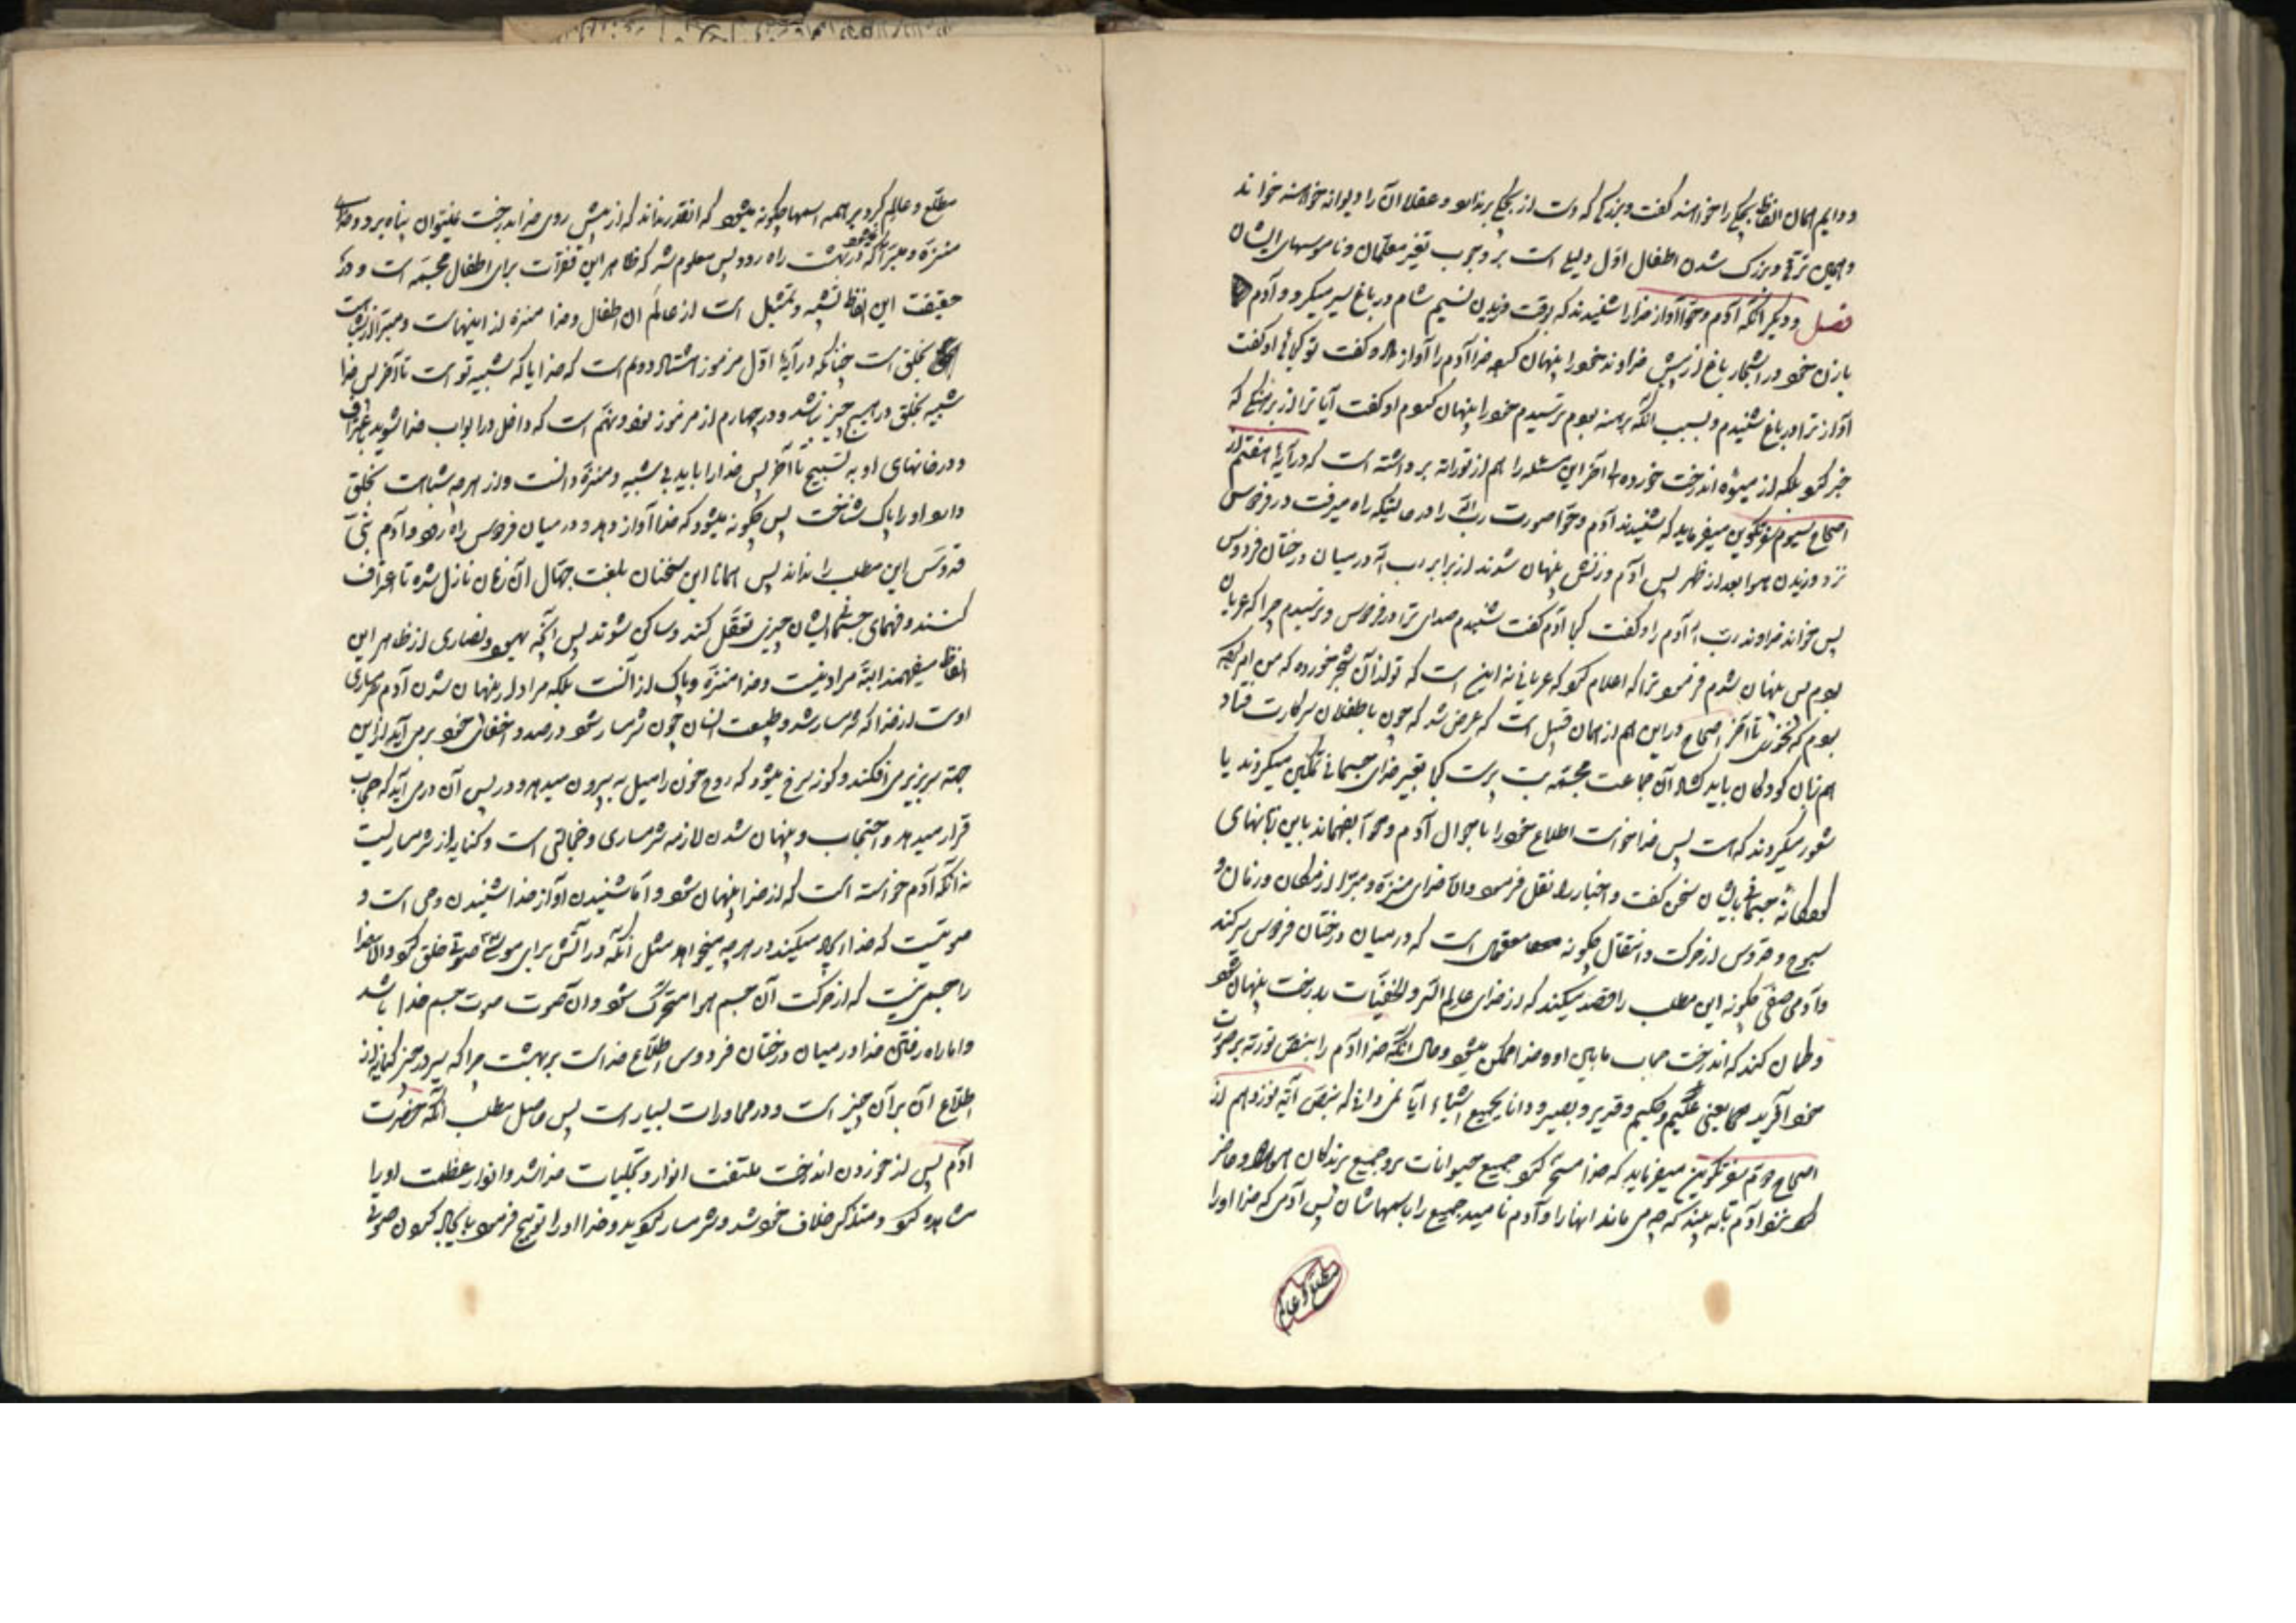 و دایم همان الفاظ بچگی را خواهند گفت و بزرگی که دست از بچگی برندارد و عقلا آن را دیوانه خواهند خواند
و همین ترقی و بزرک شدن اطفال اول دلیلی است بر وجوب تغیر معلمان و ناموسهای ایشان
فصل و دیگر آنکه آدم و حوا آواز خدا را شنیدند که بوقت وزیدن نسیم شام در باغ سیر میکرد و آدم
بازن خود در اشجار باغ از پیش خداوند خود را پنهان کرد خدا آدم را آواز داد و گفت تو کجائی او گفت
آواز ترا در باغ شنیدم و بسبب آنکه برهنه بودم ترسیدم خود را پنهان کردم او گفت آیا ترا از برهنگی که
خبر کرد بلکه از میوه آن درخت خورده تا آخر این مسئله را هم از توراة برداشته است که در آیه هفتم از
اصحاح سیوم سفر تکوین میفرماید که شنیدند آدم و حوا صورت رب اله را در حالتیکه راه میرفت در فردوس
نزد وزیدن هوا بعد از ظهر پس آدم و زنش پنهان شدند از برابر رب اله در میان درختان فردوس
پس خواند خداوند رب اله آدم را و گفت کجا آدم گفت شنیدم صدای ترا در فردوس و ترسیدم چرا که عریان
بودم پس پنهان شدم فرمود ترا که اعلام کرد که عریانی نه این است که تو از آن شجر خورده که من امر کرده
بودم که نخوری تا آخر اصحاح و این هم از همان قبیل است که عرض شد که چون با طفلان سر کارت فتاد
هم زبان کودکان باید گشاد آن جماعت مجسمه بت پرست کجا بغیر خدای جسمانی تمکین میکردند یا
شعور میکردند که هست پس خدا خواست اطلاع خود را باحوال آدم و حوا بفهماند باین زبانهای
جسمانی بایشان سخن گفت و اخبار را نقل فرمود والا خدای منزه و مبرا از مکان و زمان و
سبوح و قدوس از حرکت و انتقال چگونه معقول است که در میان درختان فردوس سیر کند
و آدم صفی چگونه این مطلب را قصد میکند که از خدای عالم السر والخفیات بدرخت پنهان شود
و گمان کند که آن درخت حجاب مابین او و خدا ممکن میشود و حال آنکه خدا آدم را بنص توریة بر صورت
خود آفرید یعنی علیم و حکیم و قدیر و بصیر و دانا بجمیع اشیاء آیا نمی دانی که بنص آیه نوزدهم از
اصحاح دوم سفر تکوین میفرماید که خدا مسخر کرد جمیع حیوانات بر و جمیع پرندگان هوا را و حاضر
کرد نزد آدم تا به بیند که چه می نامد آنها را و آدم نامید جمیع را باسمهاشان پس آدمی که خدا او را
مطلع و عالم
مطلع و عالم کرد بر همه اسمها چگونه میشود که آنقدر نداند که از پیش روی خدا بدرخت نمیتوان پناه برد و خدای
منزه و مبرا که در بهشت راه رود پس معلوم شد که ظاهر این فقرات برای اطفال مجسمه است و در
حقیقت این الفاظ تشبیه و تمثیل است از عالم آن اطفال و خدا منزه از اینهاست و مبرا از شباهت
بخلق است چنانکه در آیه اول مزمور هشتاد و دوم است که خدایا که شبیه تو است تا آخر پس خدا
شبیه بخلق در هیچ چیز نباشد و در چهارم از مزمور نود و نهم است که داخل در ابواب خدا شوید باعتراف
و در خانهای او به تسبیح تا آخر پس خدا را باید بی شبیه و منزه دانست و از هر چه شباهت بخلق
دارد او را پاک شناخت پس چگونه میشود که خدا آواز دهد و در میان فردوس راه رود و آدم نبی
قدوس این مطلب را نداند پس همانا این سخنان بلغت جهال آن زمان نازل شده تا اعتراف
کنند و فهمای جسمانی ایشان چیزی تعقل کنند و ساکن شوند پس آنچه یهود و نصاری از ظاهر این
الفاظ میفهمند البته مراد نیست و خدا منزه و پاک از آنست بلکه مراد از پنهان شدن آدم شرمساری
اوست از خدا که شرمسار شد و طبیعت انسان چون شرمسار شود در صدد اخفای خود برمی آید از این
جهة سر بزیر می افکند و گونه سرخ میشود که روح خون را میل به بیرون میدهد و در پس آن در می آید که حجاب
قرار میدهد و احتجاب و پنهان شدن لازمه شرمساری و خجالتی است و کنایه از شرمساریست
نه آنکه آدم خواسته است که از خدا پنهان شود و اما شنیدن آواز خدا شنیدن وحی است و
صوتیست که خدا ایجاد میکند در هر چه میخواهد مثل آنکه در آتش برای موسی صوتی خلق کرد والا خدا
را جسمی نیست که از حرکت آن جسم هوا متحرک شود و آن صوت صوت جسم خدا باشد
و اما راه رفتن خدا در میان درختان فردوس اطلاع خداست بر بهشت چرا که سیر در چیز کنایه از
اطلاع آن بر آن چیز است و در محاورات بسیار است پس حاصل مطلب آنکه حضرت
آدم پس از خوردن آن درخت ملتفت انوار و تجلیات خدا شد و انوار عظمت او را
مشاهده کرد و متذکر خلاف خود شد و شرمسار گردید و خدا او را توبیخ فرمود با ایجاد کردن صوتی